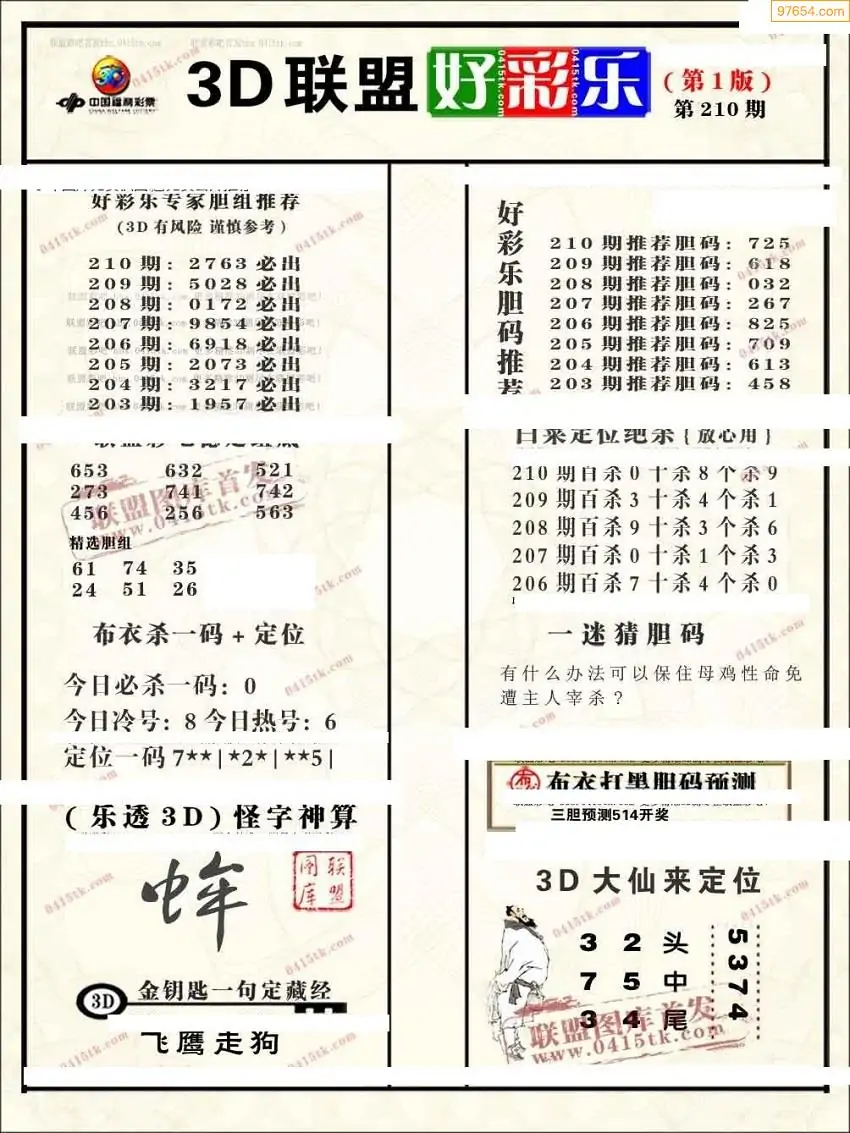 97654.com
3D联盟好彩乐
(第1版)
第210期
中国福利彩票
CHINA WELFARE LOTTERY
好彩乐专家胆组推荐
(3D有风险 谨慎参考)
210期: 2763必出
209期: 5028必出
208期: 0172必出
207期: 9854必出
206期: 6918必出
205期: 2073必出
204期: 3217必出
203期: 1957必出
653 632 521
273 741 742
456 256 563
精选胆组
61 74 35
24 51 26
布衣杀一码+定位
今日必杀一码: 0
今日冷号: 8 今日热号: 6
定位一码 7**|*2*|**5|
(乐透3D)怪字神算
联盟图库
3D
金钥匙一句定藏经
飞鹰走狗
好彩乐胆码推荐
210期推荐胆码: 725
209期推荐胆码: 618
208期推荐胆码: 032
207期推荐胆码: 267
206期推荐胆码: 825
205期推荐胆码: 709
204期推荐胆码: 613
203期推荐胆码: 458
白菜定位绝杀{放心用}
210期百杀0十杀8个杀9
209期百杀3十杀4个杀1
208期百杀9十杀3个杀6
207期百杀0十杀1个杀3
206期百杀7十杀4个杀0
一迷猜胆码
有什么办法可以保住母鸡性命免
遭主人宰杀?
布 布衣打黑胆码预测
三胆预测514开奖
3D大仙来定位
3 2 头
7 5 中
3 4 尾
5374
联盟图库首发
www.0415tk.com